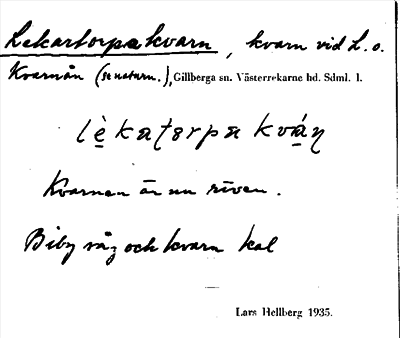 Lekartorpa kvarn, kvarn vid L. o.
Kvarnån (se naturn.), Gillberga sn. Västerrekarne hd. Sdml. l.
lè̠katorpa kvá̠ɳ
Kvarnen är nu riven.
Biby såg och kvarn kal
Lars Hellberg 1935.